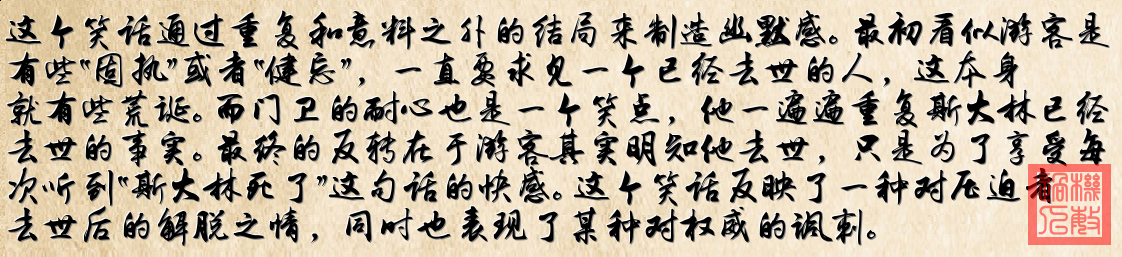 这个笑话通过重复和意料之外的结局来制造幽默感。最初看似游客是
有些“固执”或者“健忘”，一直要求见一个已经去世的人，这本身
就有些荒诞。而门卫的耐心也是一个笑点，他一遍遍重复斯大林已经
去世的事实。最终的反转在于游客其实明知他去世，只是为了享受每
次听到“斯大林死了”这句话的快感。这个笑话反映了一种对压迫者
去世后的解脱之情，同时也表现了某种对权威的讽刺。